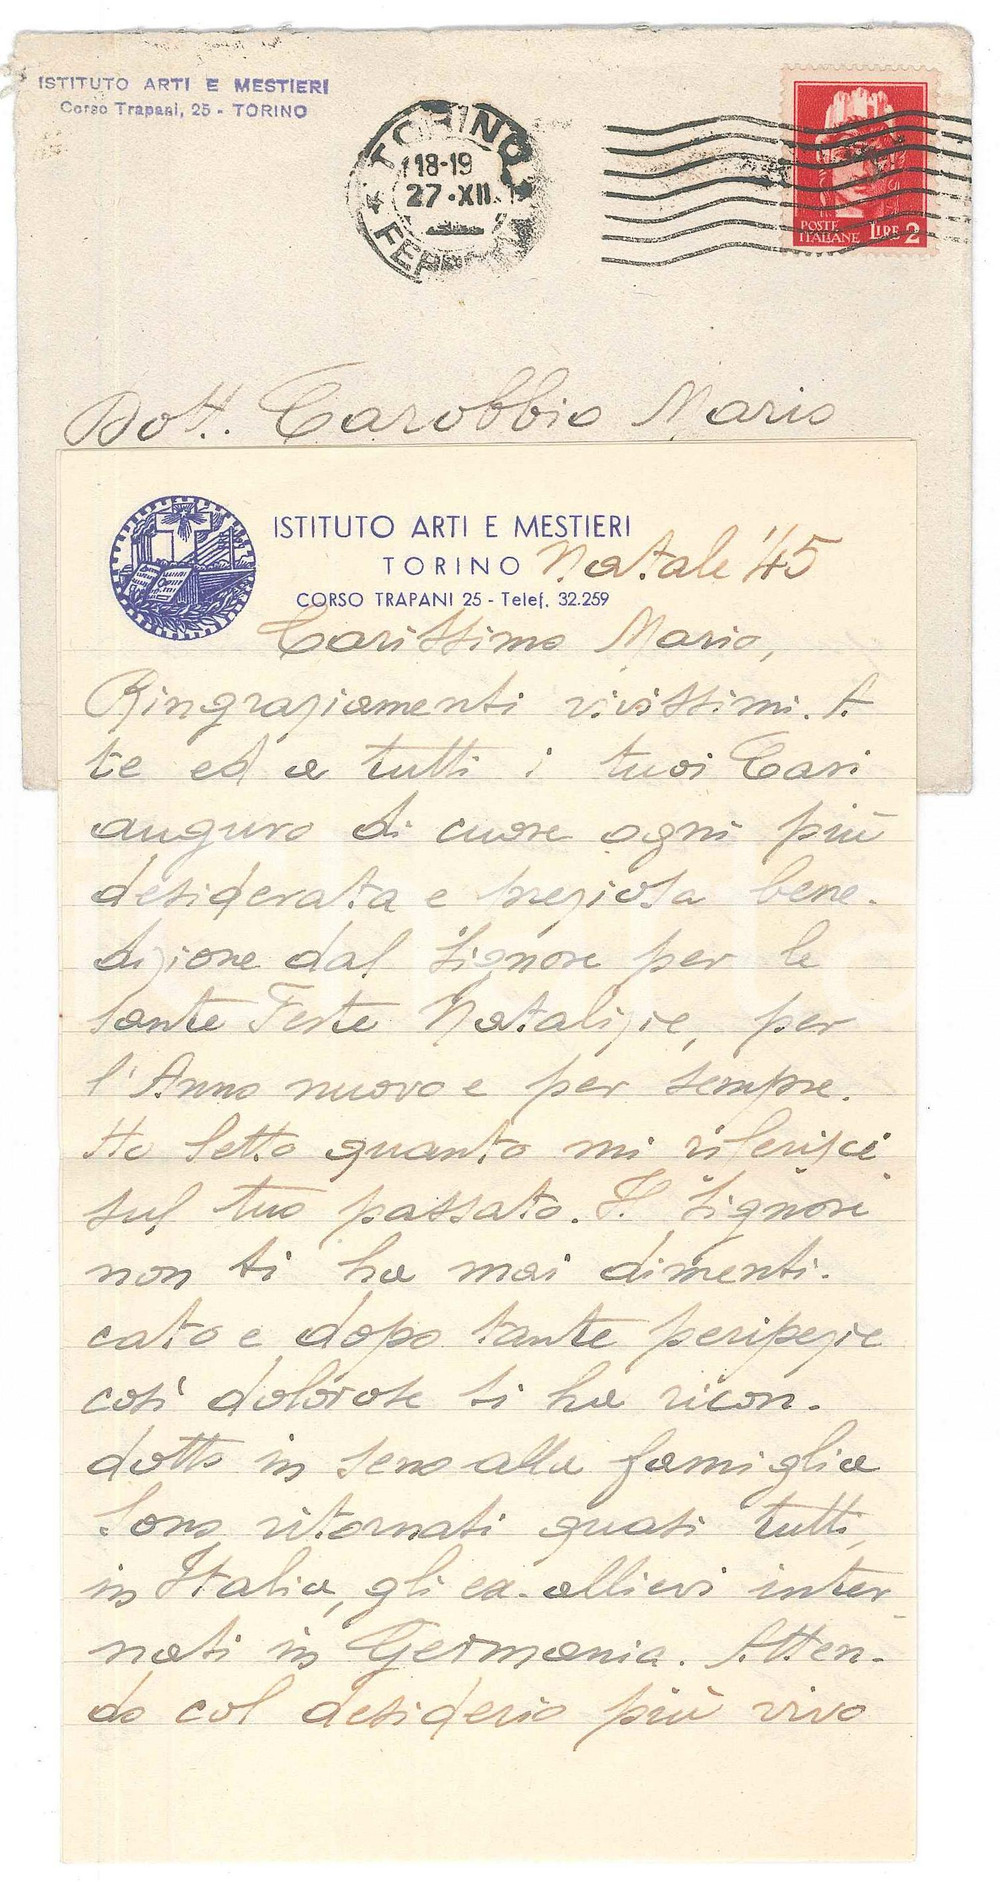 ISTITUTO ARTI E MESTIERI
Corso Trapani, 25 - TORINO
TORINO
18-19
27·XII
POSTE
ITALIANE LIRE 2
Dott. Carobbio Mario
ISTITUTO ARTI E MESTIERI
TORINO Natale '45
CORSO TRAPANI 25 - Telef. 32.259
Carissimo Mario,
Ringraziamenti vivissimi. A
te ed a tutti i tuoi Cari
auguro di cuore ogni più
desiderata e preziosa bene-
dizione dal Signore per le
sante Feste Natalizie, per
l'Anno nuovo e per sempre.
Ho letto quanto mi riferisci
sul tuo passato. Il Signore
non ti ha mai dimenti-
cato e dopo tante peripezie
così dolorose ti ha ricon-
dotto in seno alla famiglia
Sono ritornati quasi tutti,
in Italia, gli ex-allievi inter-
nati in Germania. Atten-
do col desiderio più vivo